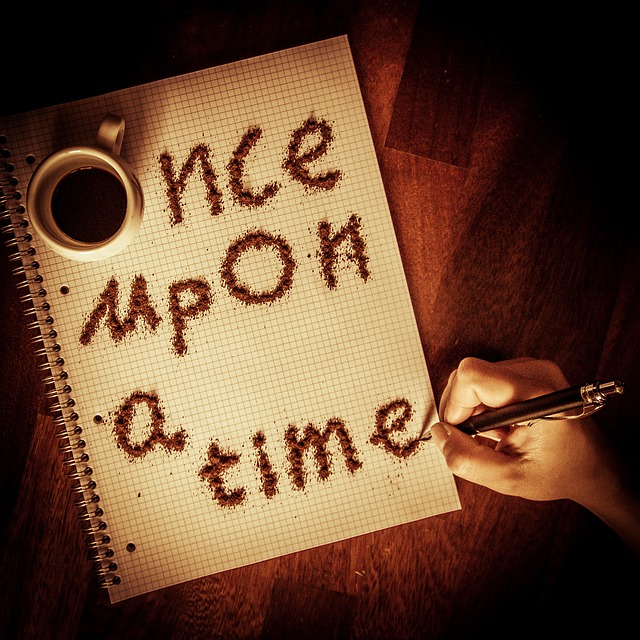 Once
upon
a
time